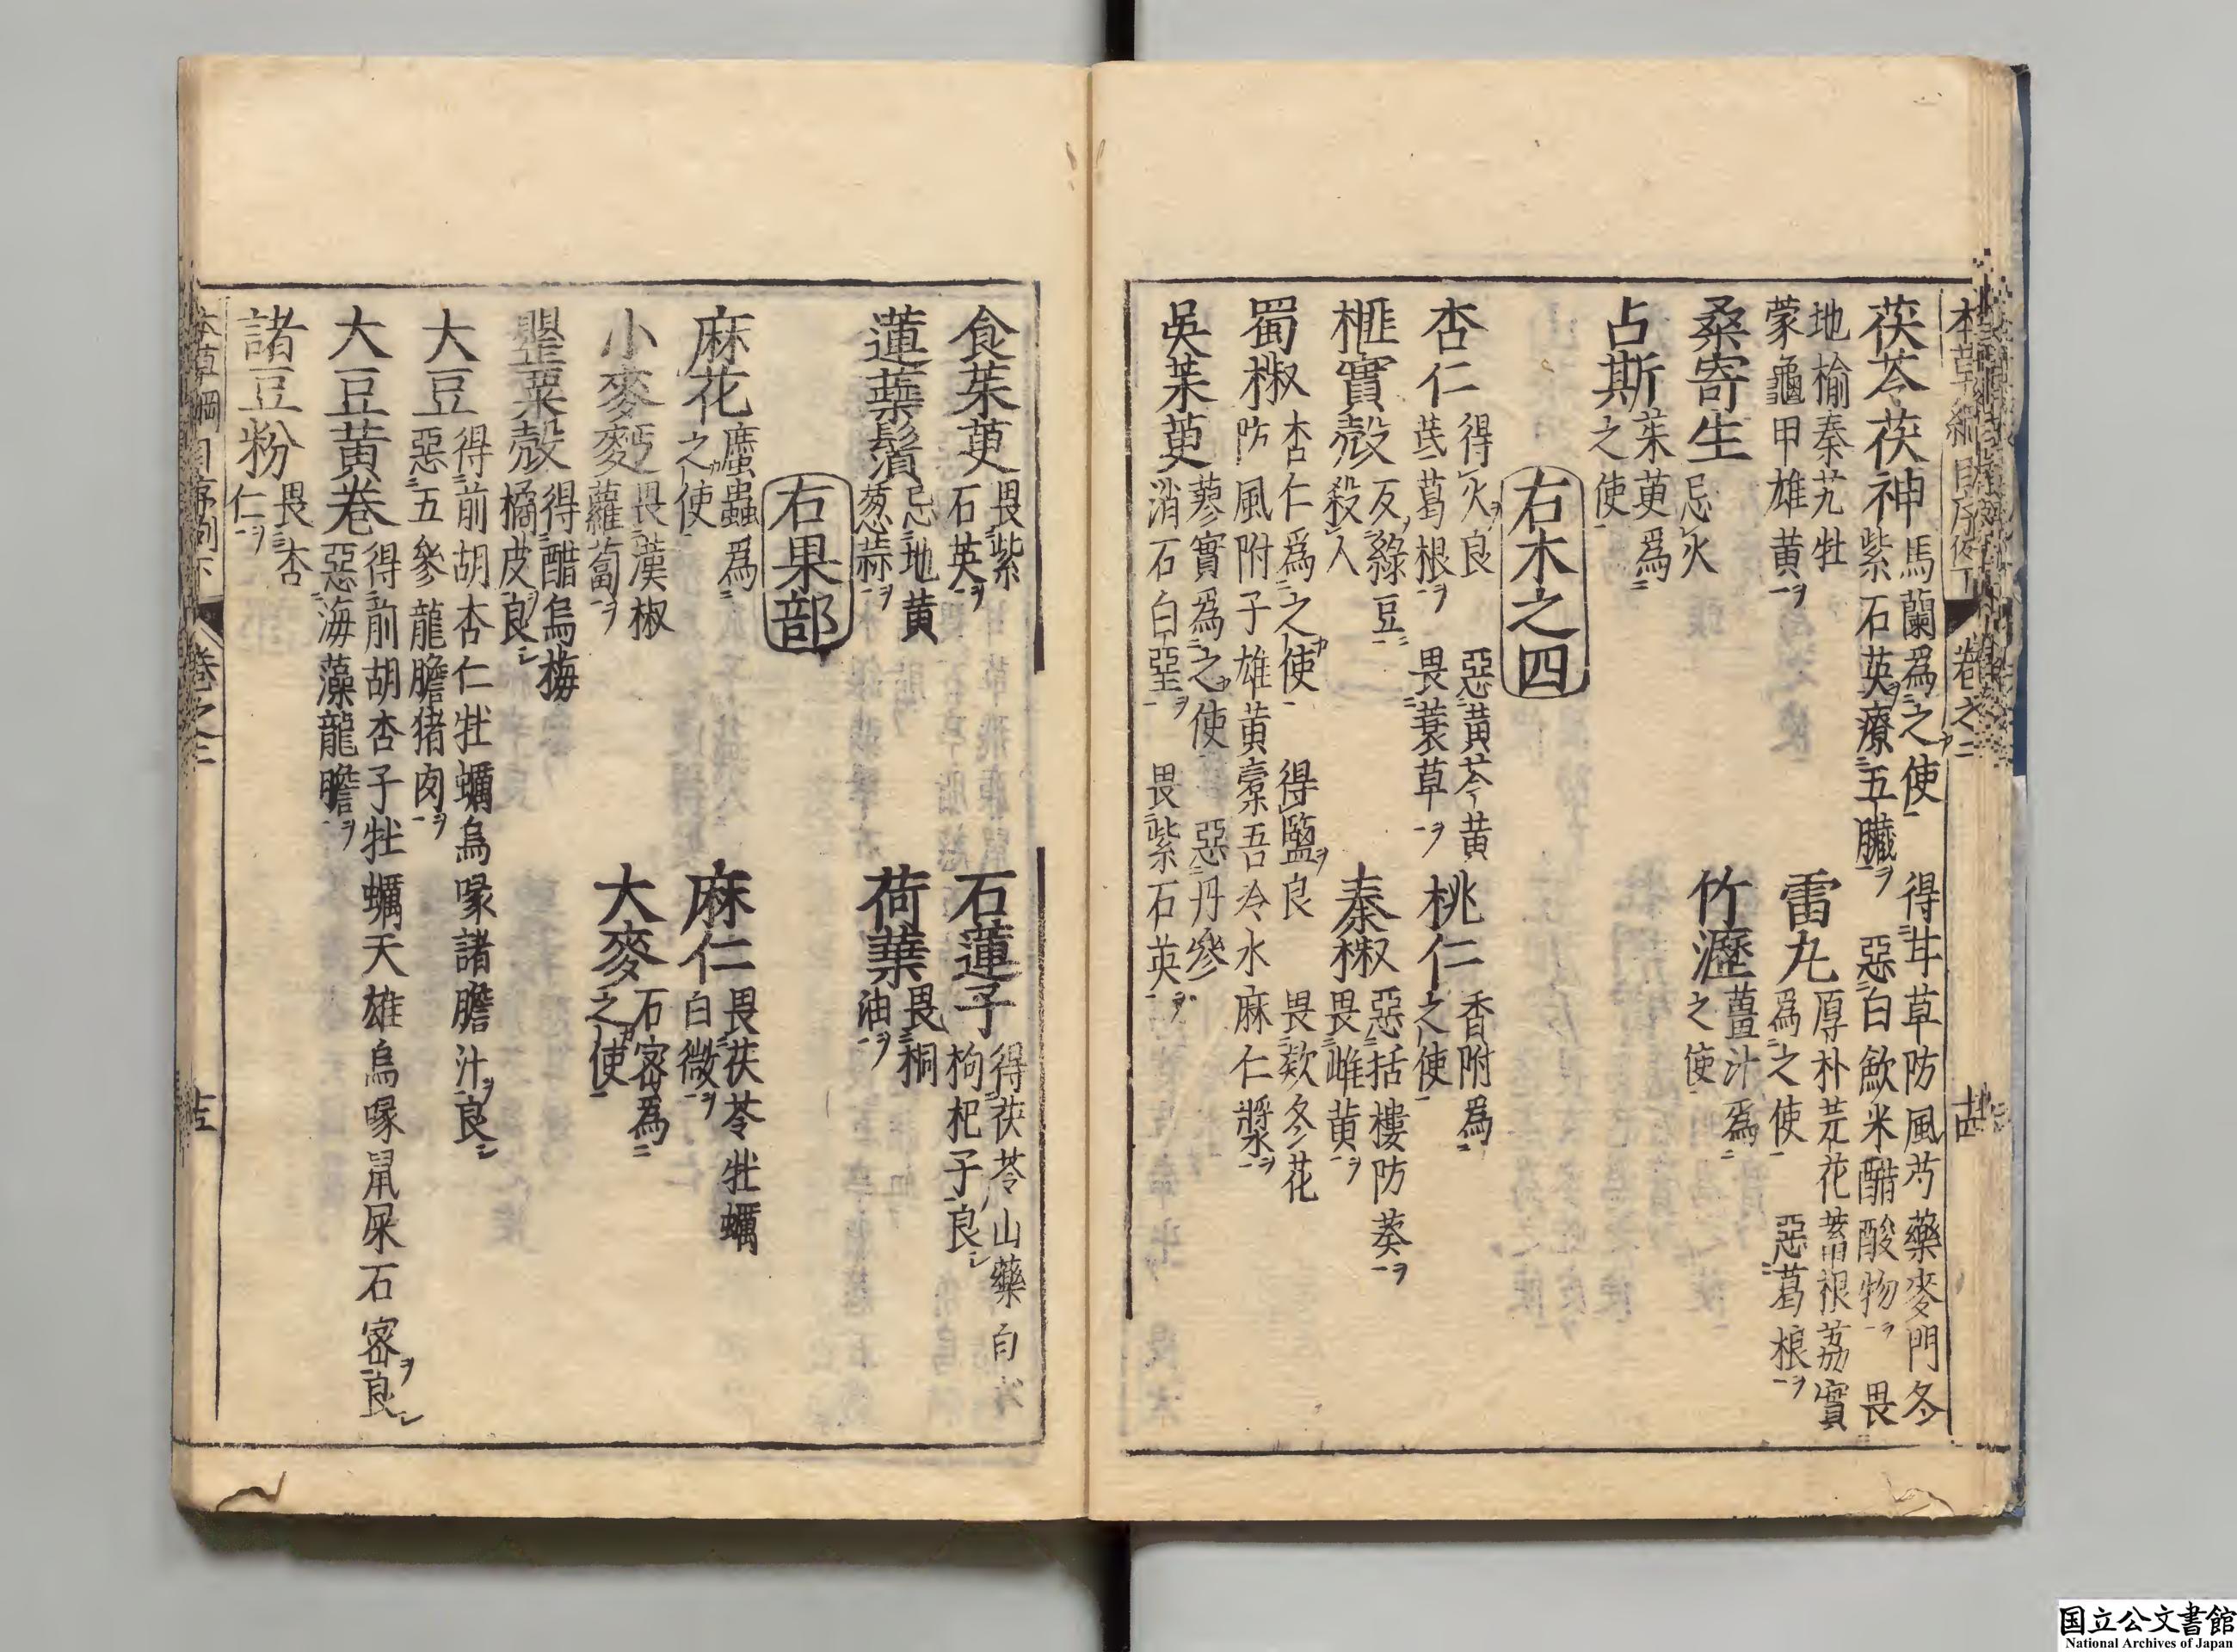 本草綱目序例下 卷之二
茯苓茯神 馬蘭爲之使 得甘草防風芍藥麥門冬
紫石英療五臟 惡白歛米醋酸物 畏
地榆秦艽牡
蒙龜甲雄黄
雷丸 厚朴芫花蓄根荔實
爲之使 惡葛根
桑寄生 忌火
竹瀝 薑汁爲
之使
占斯 茱萸爲
之使
右木之四
杏仁 得火良 惡黄芩黄
芪葛根 畏蓑草
桃仁 香附爲
之使
榧實殻 反綠豆
殺人
秦椒 惡括樓防葵
畏雌黄
蜀椒 杏仁爲之使 得鹽良 畏欵冬花
防風附子雄黄橐吾冷水麻仁漿
吳茱萸 蓼實爲之使 惡丹參
消石白堊 畏紫石英
食茱萸 畏紫
石英
石蓮子 得茯苓山藥白朮
枸杞子良
蓮蘂鬚 忌地黄
葱蒜
荷葉 畏桐
油
右果部
麻花 䗪蟲爲
之使
麻仁 畏茯苓牡蠣
白微
小麥麪 畏漢椒
蘿蔔
大麥 石密爲
之使
罌粟殻 得醋烏梅
橘皮良
大豆 得前胡杏仁牡蠣烏喙諸膽汁良
惡五參龍膽猪肉
大豆黄卷 得前胡杏子牡蠣天雄烏喙鼠屎石密良
惡海藻龍膽
諸豆粉 畏杏
仁
本草綱目序例下 卷之二
国立公文書館
National Archives of Japan